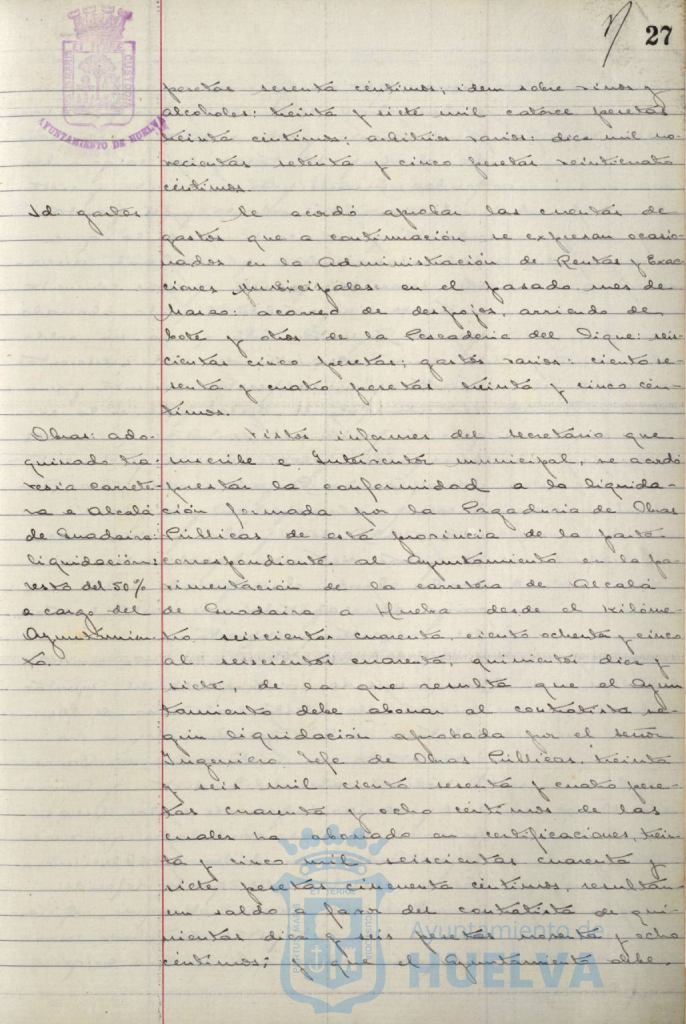 27
AYUNTAMIENTO DE HUELVA
pesetas sesenta céntimos; idem sobre vinos y
alcoholes: treinta y siete mil catorce pesetas
treinta céntimos; arbitrios varios: diez mil no-
vecientas setenta y cinco pesetas veinticuatro
céntimos.
Id. gastos
Se acordó aprobar las cuentas de
gastos que a continuación se expresan ocasio-
nados en la Administración de Rentas y Exac-
ciones municipales en el pasado mes de
Marzo: acarreo de despojos, arriendo de
bote y otros de la Pescadería del Dique: seis-
cientas cinco pesetas; gastos varios: ciento se-
senta y cuatro pesetas treinta y cinco cén-
timos.
Obras: ado-
quinado tra-
vesía carrete-
ra a Alcalá
de Guadaira:
liquidación:
resto del 50%
a cargo del
Ayuntamien-
to.
Vistos informes del Secretario que
suscribe e Interventor municipal, se acordó
prestar la conformidad a la liquida-
ción formada por la Pagaduría de Obras
Públicas de esta provincia de la parte
correspondiente al Ayuntamiento en la pa-
vimentación de la carretera de Alcalá
de Guadaira a Huelva desde el kilóme-
tro, seiscientos cuarenta, ciento ochenta y cinco
al seiscientos cuarenta, quinientos diez y
siete, de la que resulta que el Ayun-
tamiento debe abonar al contratista se-
gún liquidación aprobada por el señor
Ingeniero Jefe de Obras Públicas, treinta
y seis mil ciento sesenta y cuatro pese-
tas cuarenta y ocho céntimos de las
cuales ha abonado en certificaciones, trein-
ta y cinco mil seiscientas cuarenta y
siete pesetas cincuenta céntimos, resultan-
un saldo a favor del contratista de qui-
nientas diez y seis pesetas noventa y ocho
céntimos; y que el Ayuntamiento debe
Ayuntamiento de
HUELVA